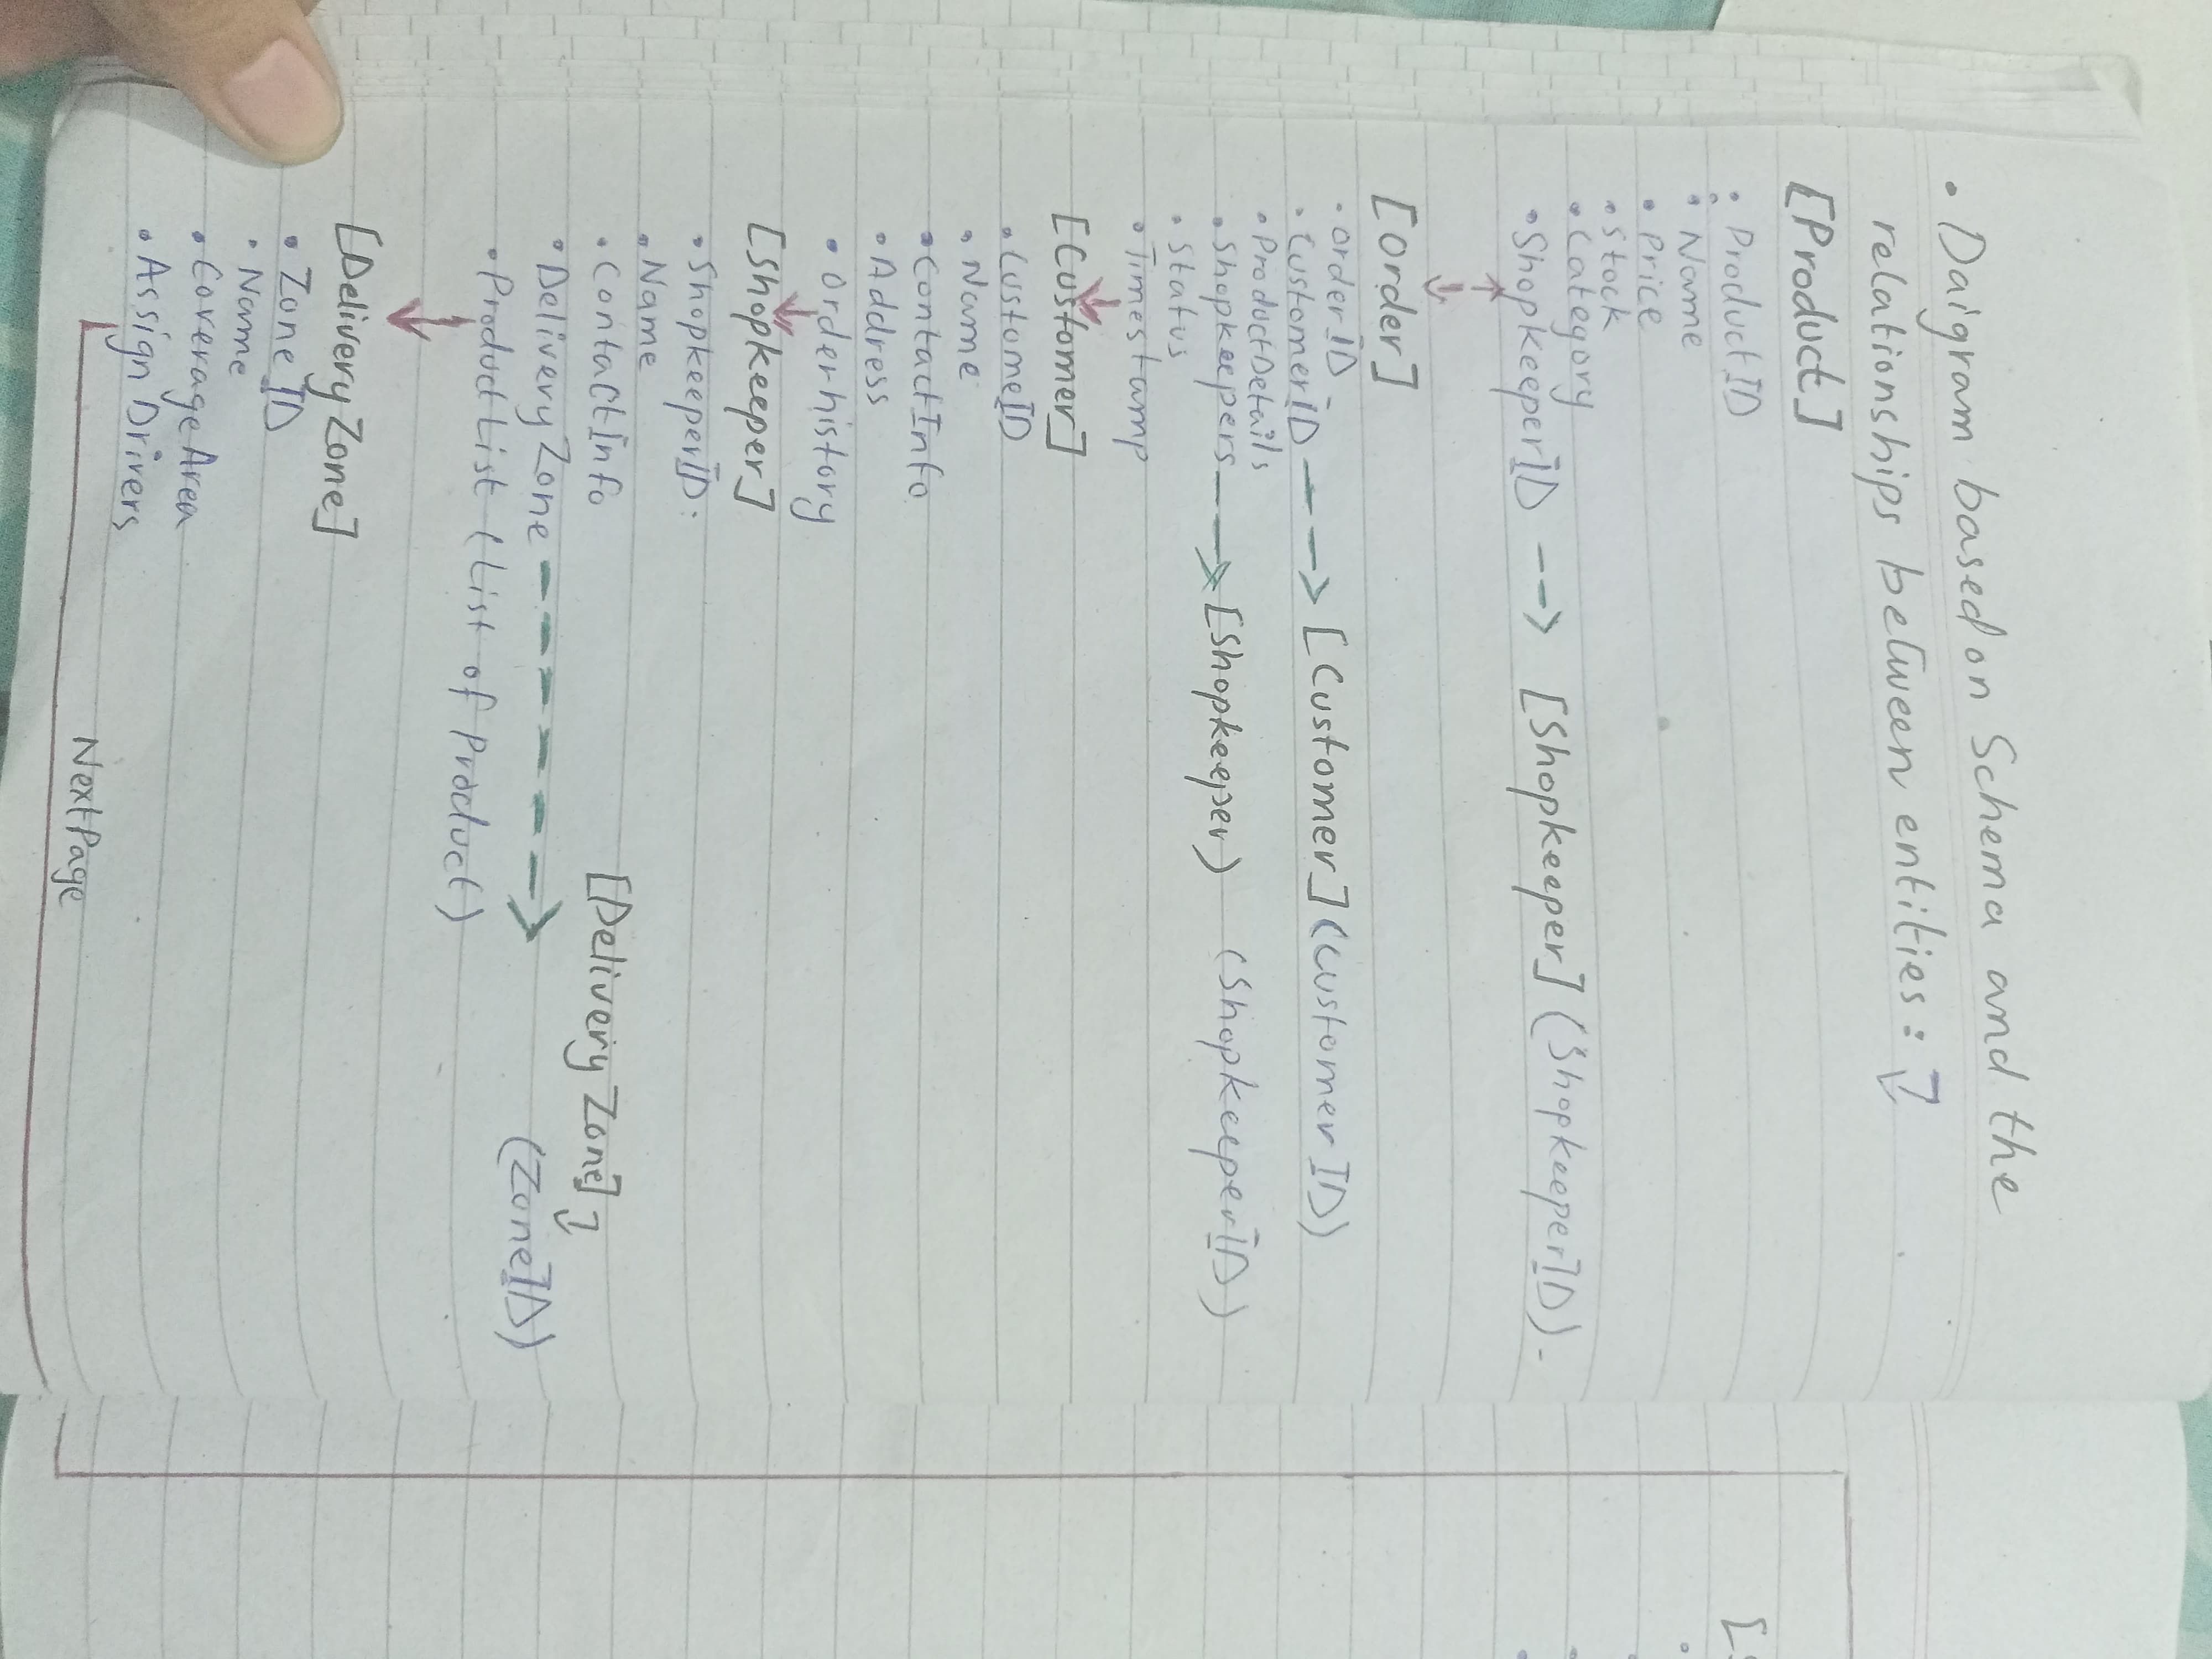 • Daigram based on Schema and the
relationships between entities:
[Product]
• ProductID
• Name
• Price
• Stock
• Category
• ShopkeeperID --> [Shopkeeper] (ShopkeeperID)-
[Order]
• OrderID
• CustomerID --> [Customer] (CustomerID)
• ProductDetails
• Shopkeepers --> [Shopkeeper) (ShopkeeperID)
• Status
• Timestamp
[Customer]
• CustomeID
• Name
• ContactInfo
• Address
• Orderhistory
[Shopkeeper]
• ShopkeeperID:
• Name
• ContactInfo
[Delivery Zone]
• Delivery Zone ------> (ZoneID)
• Product List (List of Product)
[Delivery Zone]
• Zone ID
• Name
• Coverage Area
• Assign Drivers
Next Page